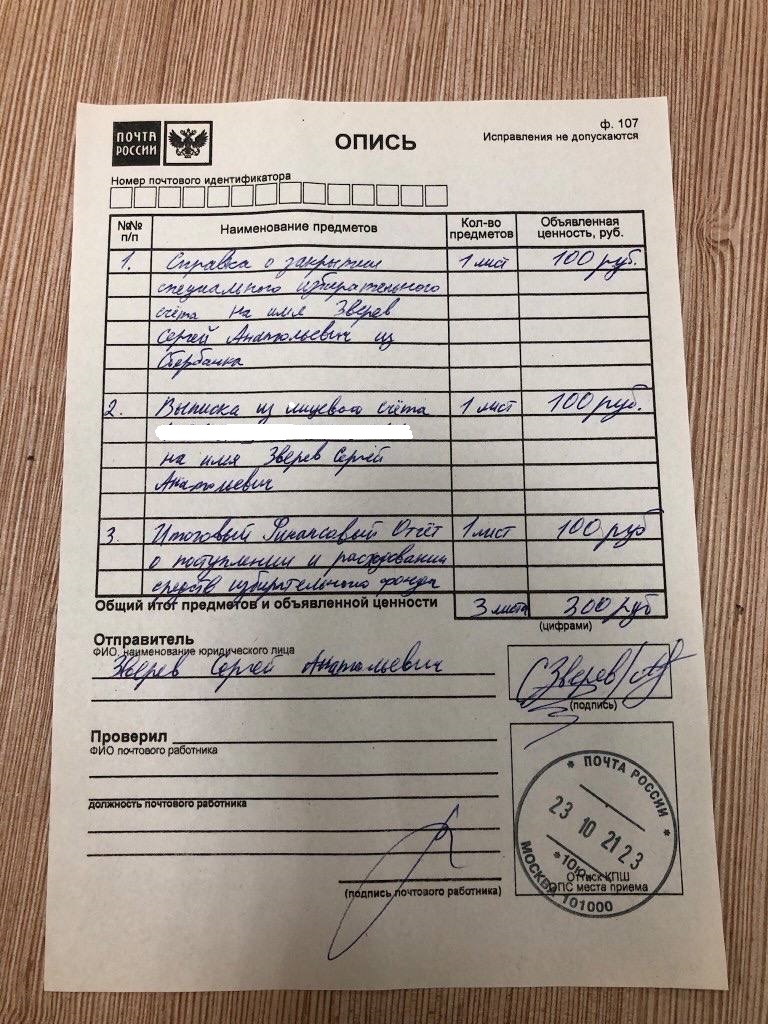 ПОЧТА РОССИИ
ОПИСЬ
ф. 107
Исправления не допускаются
Номер почтового идентификатора
№№ п/п Наименование предметов Кол-во предметов Объявленная ценность, руб.
1. Справка о закрытии 1 лист 100 руб.
специального избирательного
счёта на имя Зверев
Сергей Анатольевич из
Сбербанка
2. Выписка из лицевого счёта 1 лист 100 руб.
на имя Зверев Сергей
Анатольевич
3. Итоговый Финансовый Отчёт 1 лист 100 руб
о поступлении и расходовании
средств избирательного фонда
Общий итог предметов и объявленной ценности 3 листа 300 руб
(цифрами)
Отправитель
ФИО, наименование юридического лица
Зверев Сергей Анатольевич
С Зверев
(подпись)
Проверил
ФИО почтового работника
должность почтового работника
(подпись почтового работника)
* ПОЧТА РОССИИ *
23 10 21 23
МОСКВА 101000
Оттиск КПШ
ОПС места приема